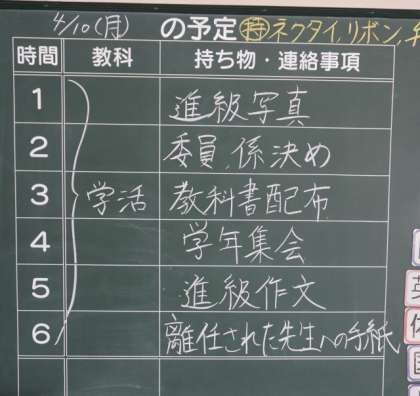 4/10(月) の予定 ㊕ネクタイ,リボン,
時間 教科 持ち物・連絡事項
1 進級写真
2 委員,係決め
3 学活 教科書配布
4 学年集会
5 進級作文
6 離任された先生への手紙